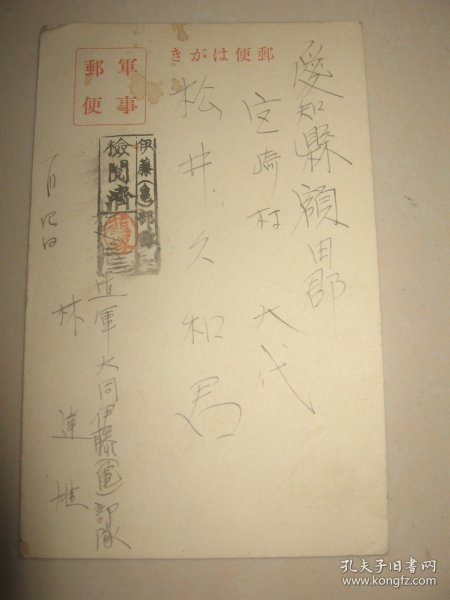 郵便はがき
軍事
郵便
愛知縣額田郡
宮崎村 大代
松井久和君
伊藤(亀)部隊
檢閲濟
軍大同伊藤(亀)部隊
林
孔夫子旧书网
www.kongfz.com